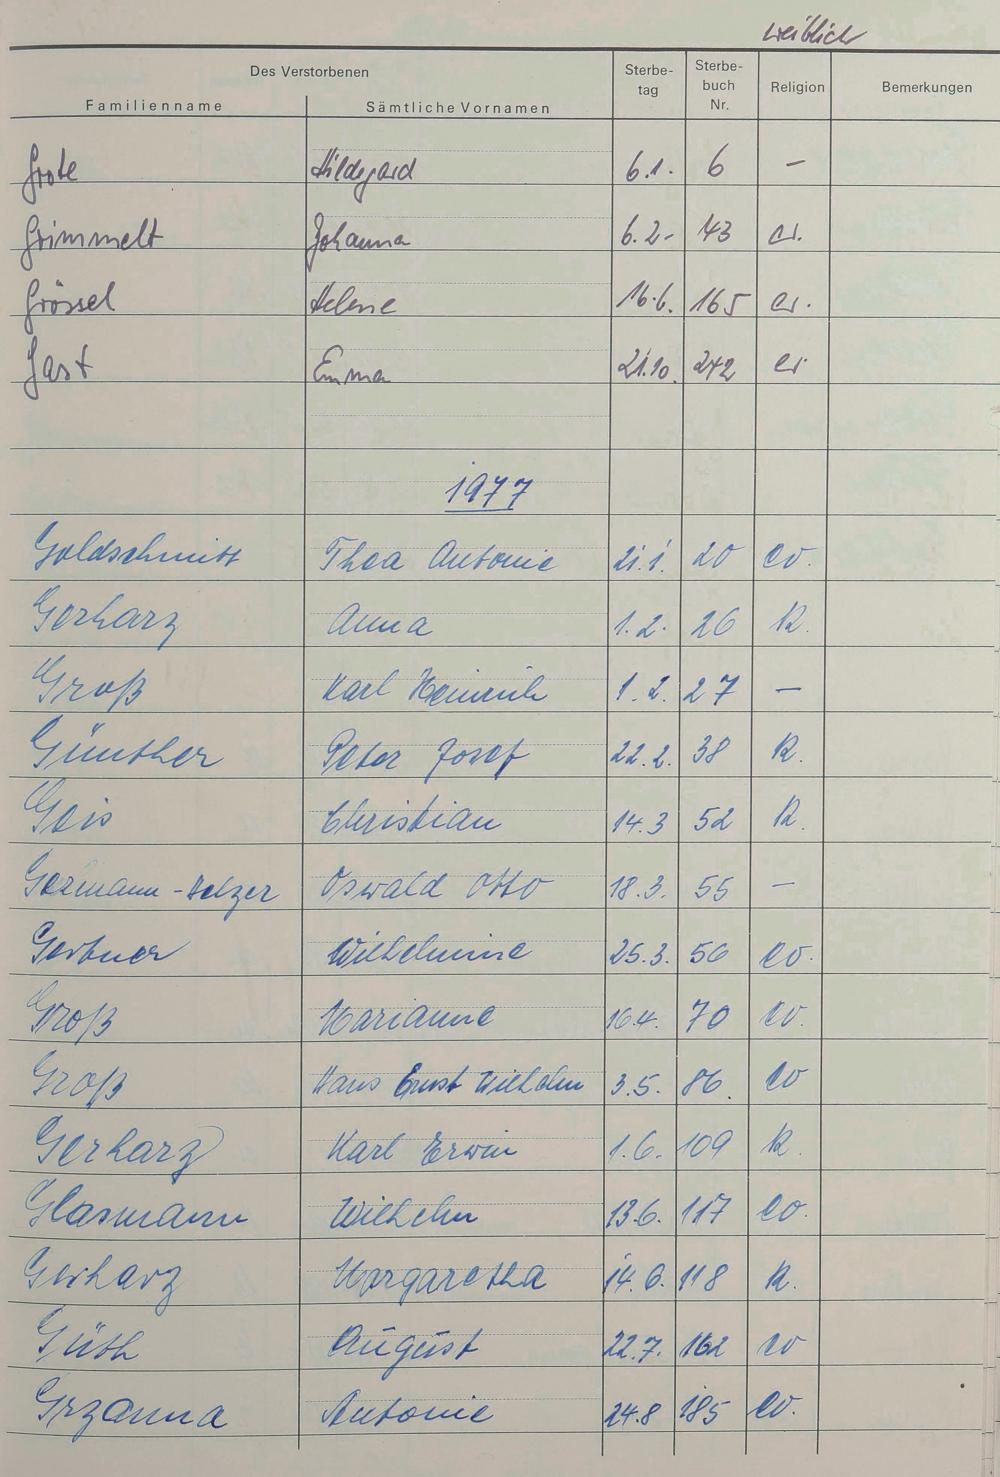 weiblich
Des Verstorbenen
Familienname
Sämtliche Vornamen
Sterbe-
tag
Sterbe-
buch
Nr.
Religion
Bemerkungen
Grote Hildegard 6.1. 6 —
Grimmelt Johanna 6.2. 43 ev.
Grössel Helene 16.6. 165 ev.
Gast Emma 21.10. 242 ev
1977
Goldschmitt Thea Antonie 21.1. 20 ev.
Gerharz Anna 1.2. 26 k.
Groß Karl Heinrich 1.2. 27 —
Günther Peter Josef 22.2. 38 k.
Geis Christian 14.3 52 k.
Germann-Melzer Oswald Otto 18.3. 55 —
Gerbner Wilhelmine 25.3. 56 ev.
Groß Marianne 16.4. 70 ev.
Groß Hans Ernst Wilhelm 3.5. 86. ev
Gerharz Karl Erwin 1.6. 109 k.
Glasmann Wilhelm 13.6. 117 ev.
Gerharz Margaretha 14.6. 118 k.
Güth August 22.7. 162 ev
Grzanna Antonie 24.8 185 ev.